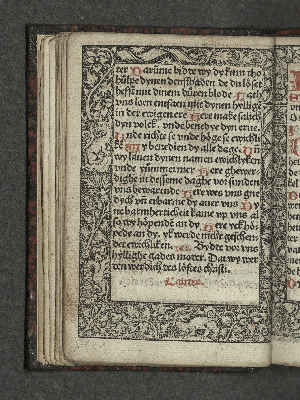 ter Darūme bidde wy dy kum tho
hülpe dynen denstbaden de du löset
hefst mit dinem düren blode Lath
vns loen entfaen mit dynen hyllige
in der ewigen ere Here make salich
dyn volck vnde benedye dyn erue.
Unde richte se vnde höge se ewichli
ke Wy benedien dy alle dage Uñ
wy lauen dynen namen ewichlyken
vnde yümmermer Here ghewer
dighe in desseme daghe vor sunden
vns bewarende Here wes vns gne
dych vñ erbarme dy auer vns Dy
ne barmherticheit kame vp vns al
so wy höpende an dy Here yck hö
pede an dy yk werde nicht geschen
det ewichliken. Bydde vor vns
hyllighe gades moter. Dat wy wer
ten werdich des löftes christi.